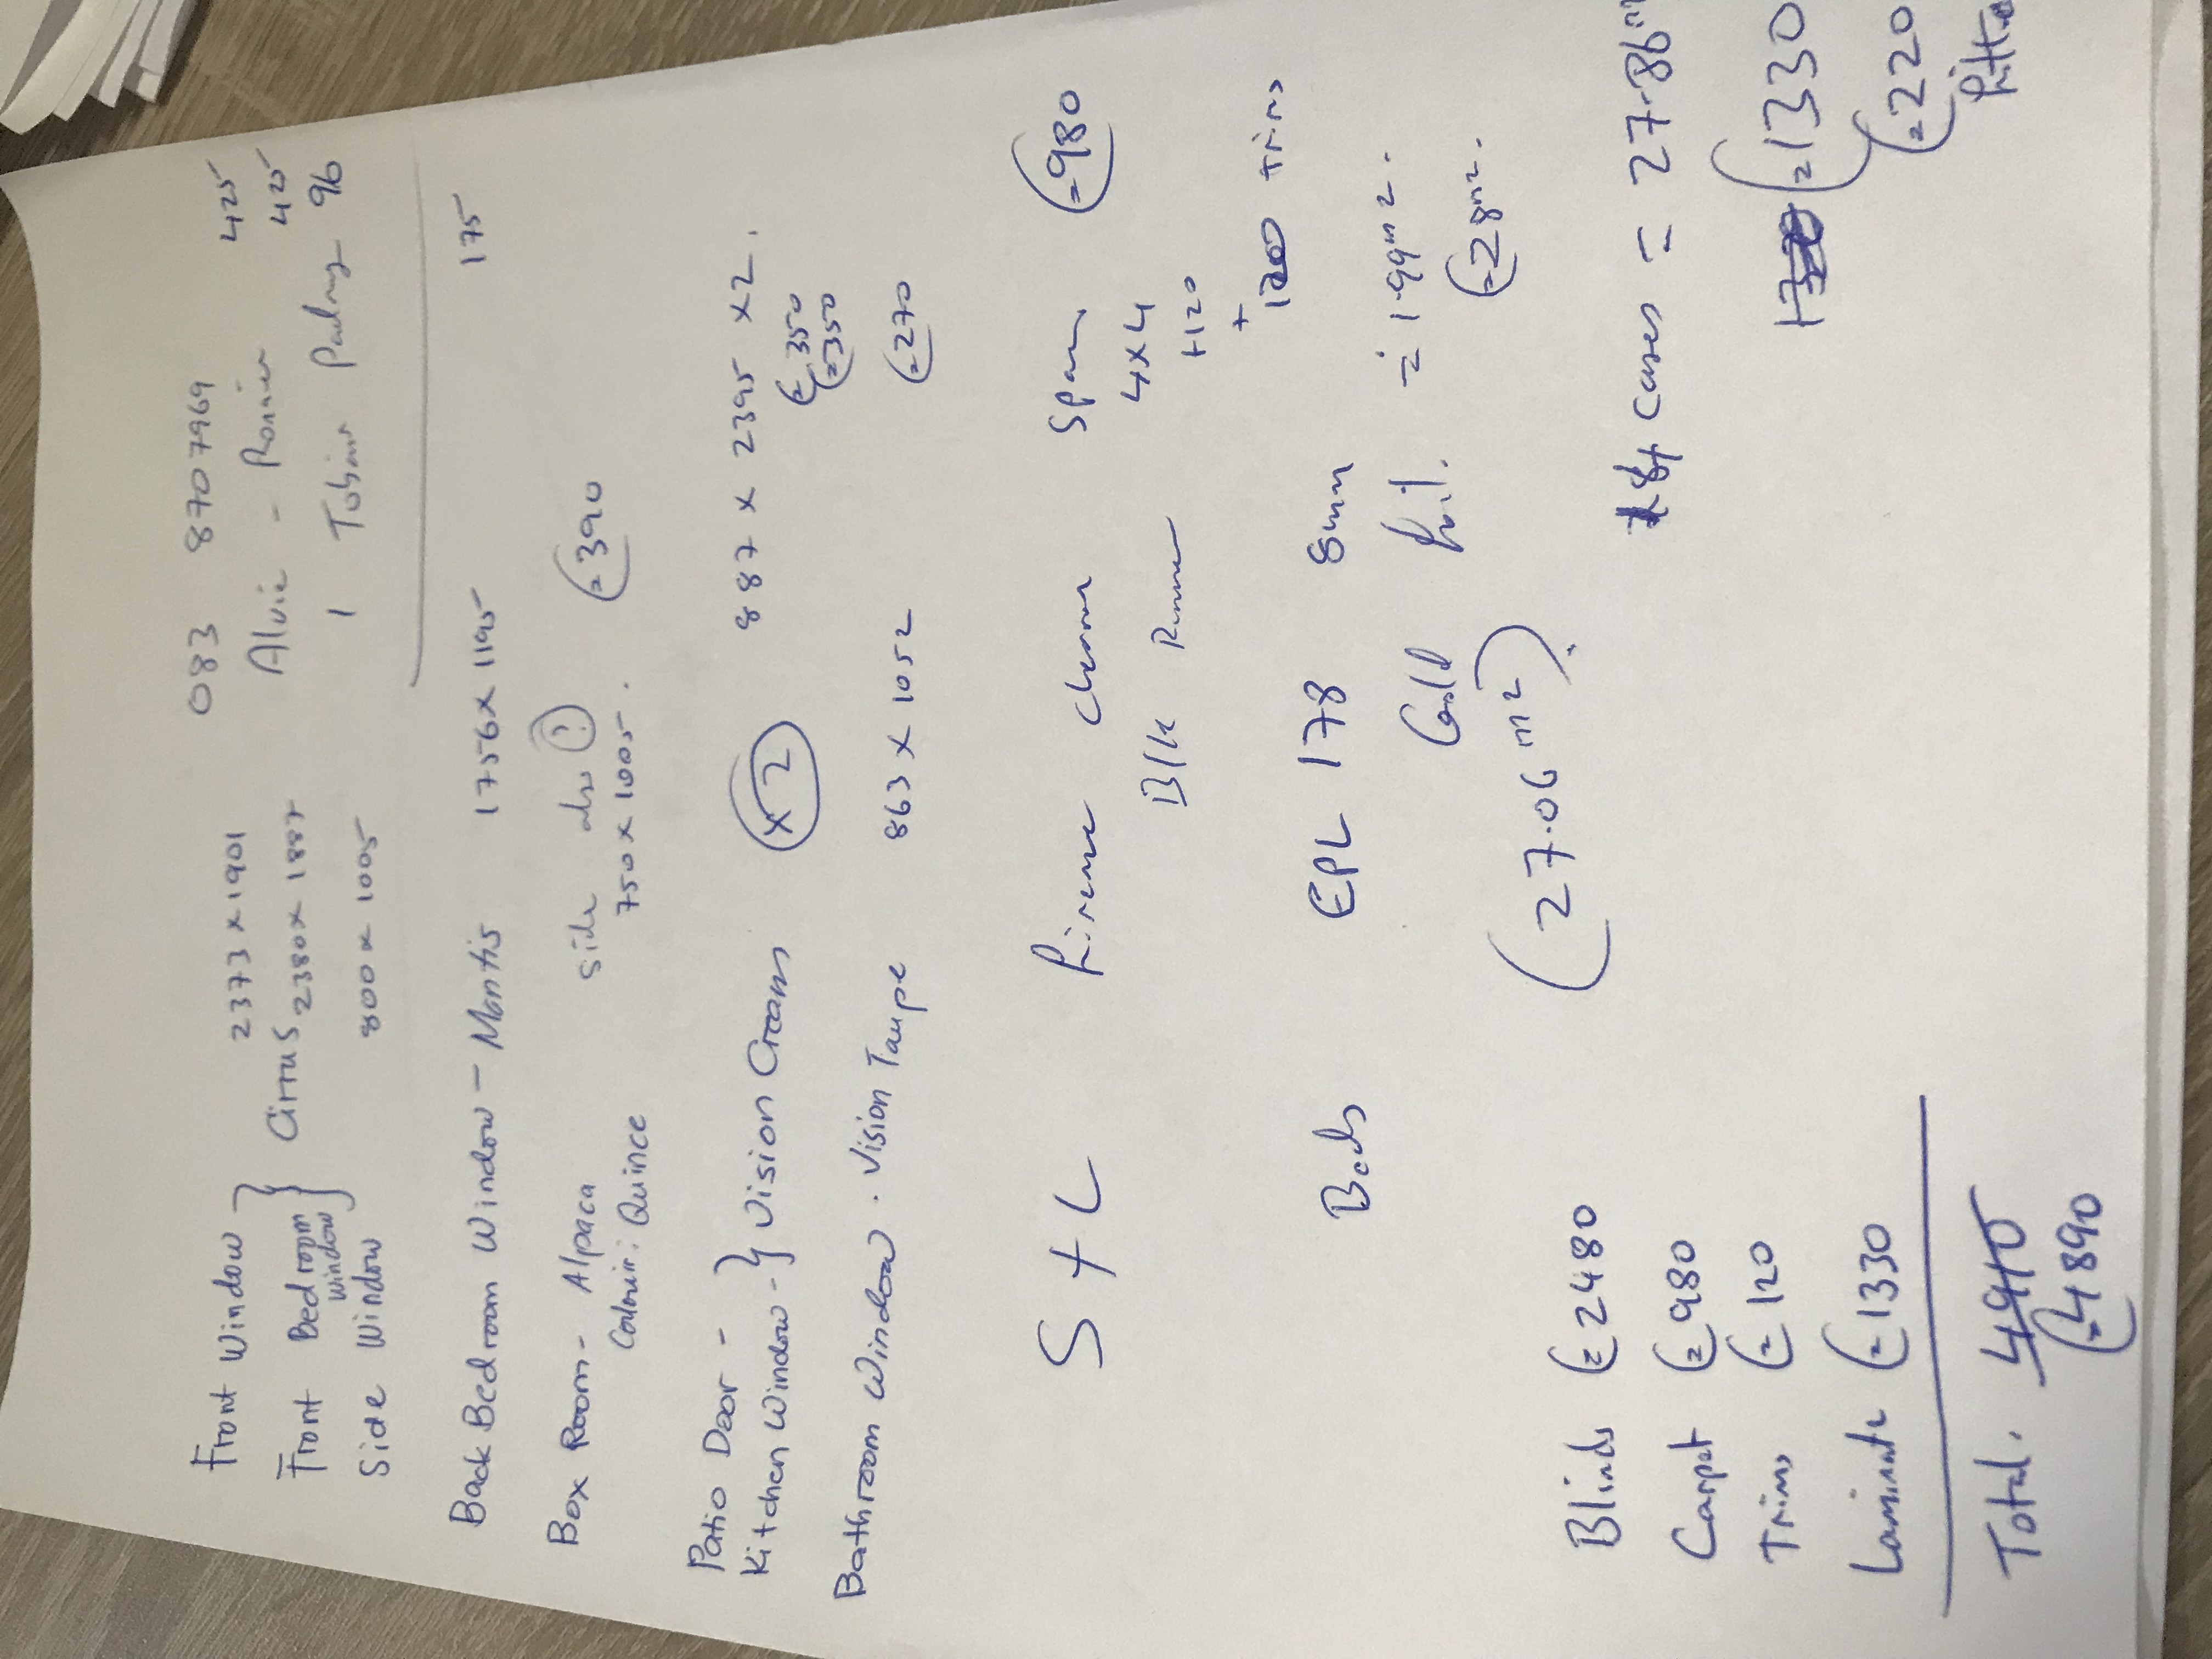 083 8707969
Front Window } 2373 x 1901 Alvie - 425
Front Bedroom Window } Cirrus 2380 x 1887 1 Tobin 425
Side Window 800 x 1005 96
Back Bedroom Window - Mantis 1756 x 1195 175
Box Room - Alpaca side also 1 €390
Colour: Quince 750 x 1005.
Patio Door -
Kitchen Window - } Vision Cream x 2 887 x 2395 x 2.
€350
€350
Bathroom Window. Vision Taupe 863 x 1052 €270
S + L Span €980
4x4
Blk Runner +120
+
trims
Beds EPL 178 8mm = 1.99m2.
€28m2.
(27.06m2)
cases = 27.86m
€1330
€220
Blinds €2480
Carpet €980
Trims €120
Laminate €1330
Total. 4910
€4890